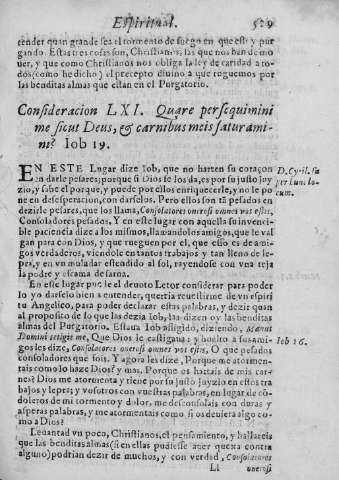 Espiritual. 529
tender quan grande sea el tormento de fuego en que estã y pur
gando. Estas tres cosas son, Christianos, las que nos han de mo
uer, y que como Christianos nos obliga la ley de caridad a to-
dos (como he dicho) el precepto diuino a que roguemos por
las benditas almas que estan en el Purgatorio.
Consideracion LXI. Quare persequimini
me sicut Deus, & carnibus meis saturami-
ni? Iob 19.
EN ESTE Lugar dize Iob, que no harten su coraçon
en darle pesares; porque si Dios se los da, es por su justo juy
zio, y sabe el porque, y puede por ellos enriquecerle, y no le po
ne en desesperacion, con darselos. Pero ellos son tã pesados en
dezirle pesares, que los llama, Consolatores onerosi omnes vos estis,
Consoladores pesados, Y en este lugar con aquella su inuenci-
ble paciencia dize a los mismos, llamandolos amigos, que le val
gan para con Dios, y que rueguen por el, que esso es de ami-
gos verdaderos, viendole en tantos trabajos y tan lleno de le-
pra, y en vn muladar estendido al sol, rayendose con vna teja
la podre y escama de sarna.
D. Cyril. su
per hunc lo-
cum.
En este lugar puede el deuoto Letor considerar para poder
lo yo darselo bien a entender, querria reuestirme de vn espiri
tu Angelico, para poder declarar estas palabras, y dezir quan
al proposito de lo que las dezia Iob, las dizen oy las benditas
almas del Purgatorio. Estaua Iob afligido, diziendo, Manus
Domini tetigit me, Que Dios le castigaua; y buelto a sus ami-
gos les dize, Consolatores onerosi omnes vos estis, O que pesados
consoladores que sois. Y agora les dize, Porque me atormen-
tais como lo haze Dios? y mas, Porque os hartais de mis car-
nes? Dios me atormenta y tiene por su justo juyzio en estos tra
bajos y lepra; y vosotros con vuestras palabras, en lugar de cõ-
doleros de mi tormento y dolor, me desconsolais con duras y
asperas palabras, y me atormentais como si os deuiera algo co-
mo a Dios?
Iob 16.
Leuantad vn poco, Christianos, el pensamiento, y hallareis
que las benditas almas (si en ellas pudiesse auer quexa contra
alguno) podrian dezir de muchos, y con verdad, Consolatores
Ll onerosi